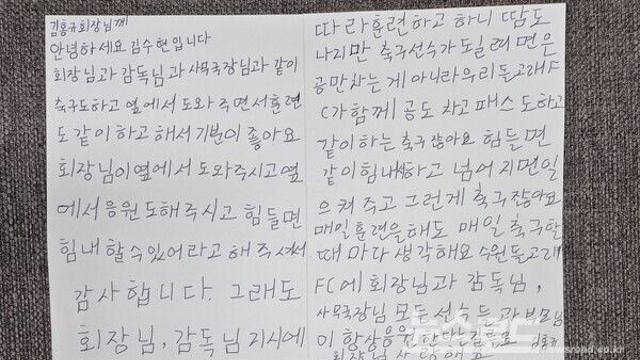 김홍규회장님께
안녕하세요 김수현입니다
회장님과 감독님과 사무국장님과 같이
축구도하고 옆에서 도와 주면서훈련
도 같이 하고 해서 기분이 좋아요
회장님이옆에서 도와주시고옆
에서 응원도해주시고 힘들면
힘내 할수있어라고 해 주셔서
감사합니다. 그래도
회장님, 감독님 지시에
따라훈련하고 하니 땀도
나지만 축구선수가 도일려면은
공만차는 게 아니라우리돌고래F
C가함께 공도 차고패스 도하고
같이하는 축구잖아요 힘들면
같이힘내하고 넘어지면일
으켜 주고 그런게 축구잖아요
매일훈련을해도 매일 축구할
때 마다 생각해요 수원돌고래
FC에 회장님과 감독님,
사무국장님 모든 선수들과 부모님
이 항상응원
회장님
newsrond.co.kr